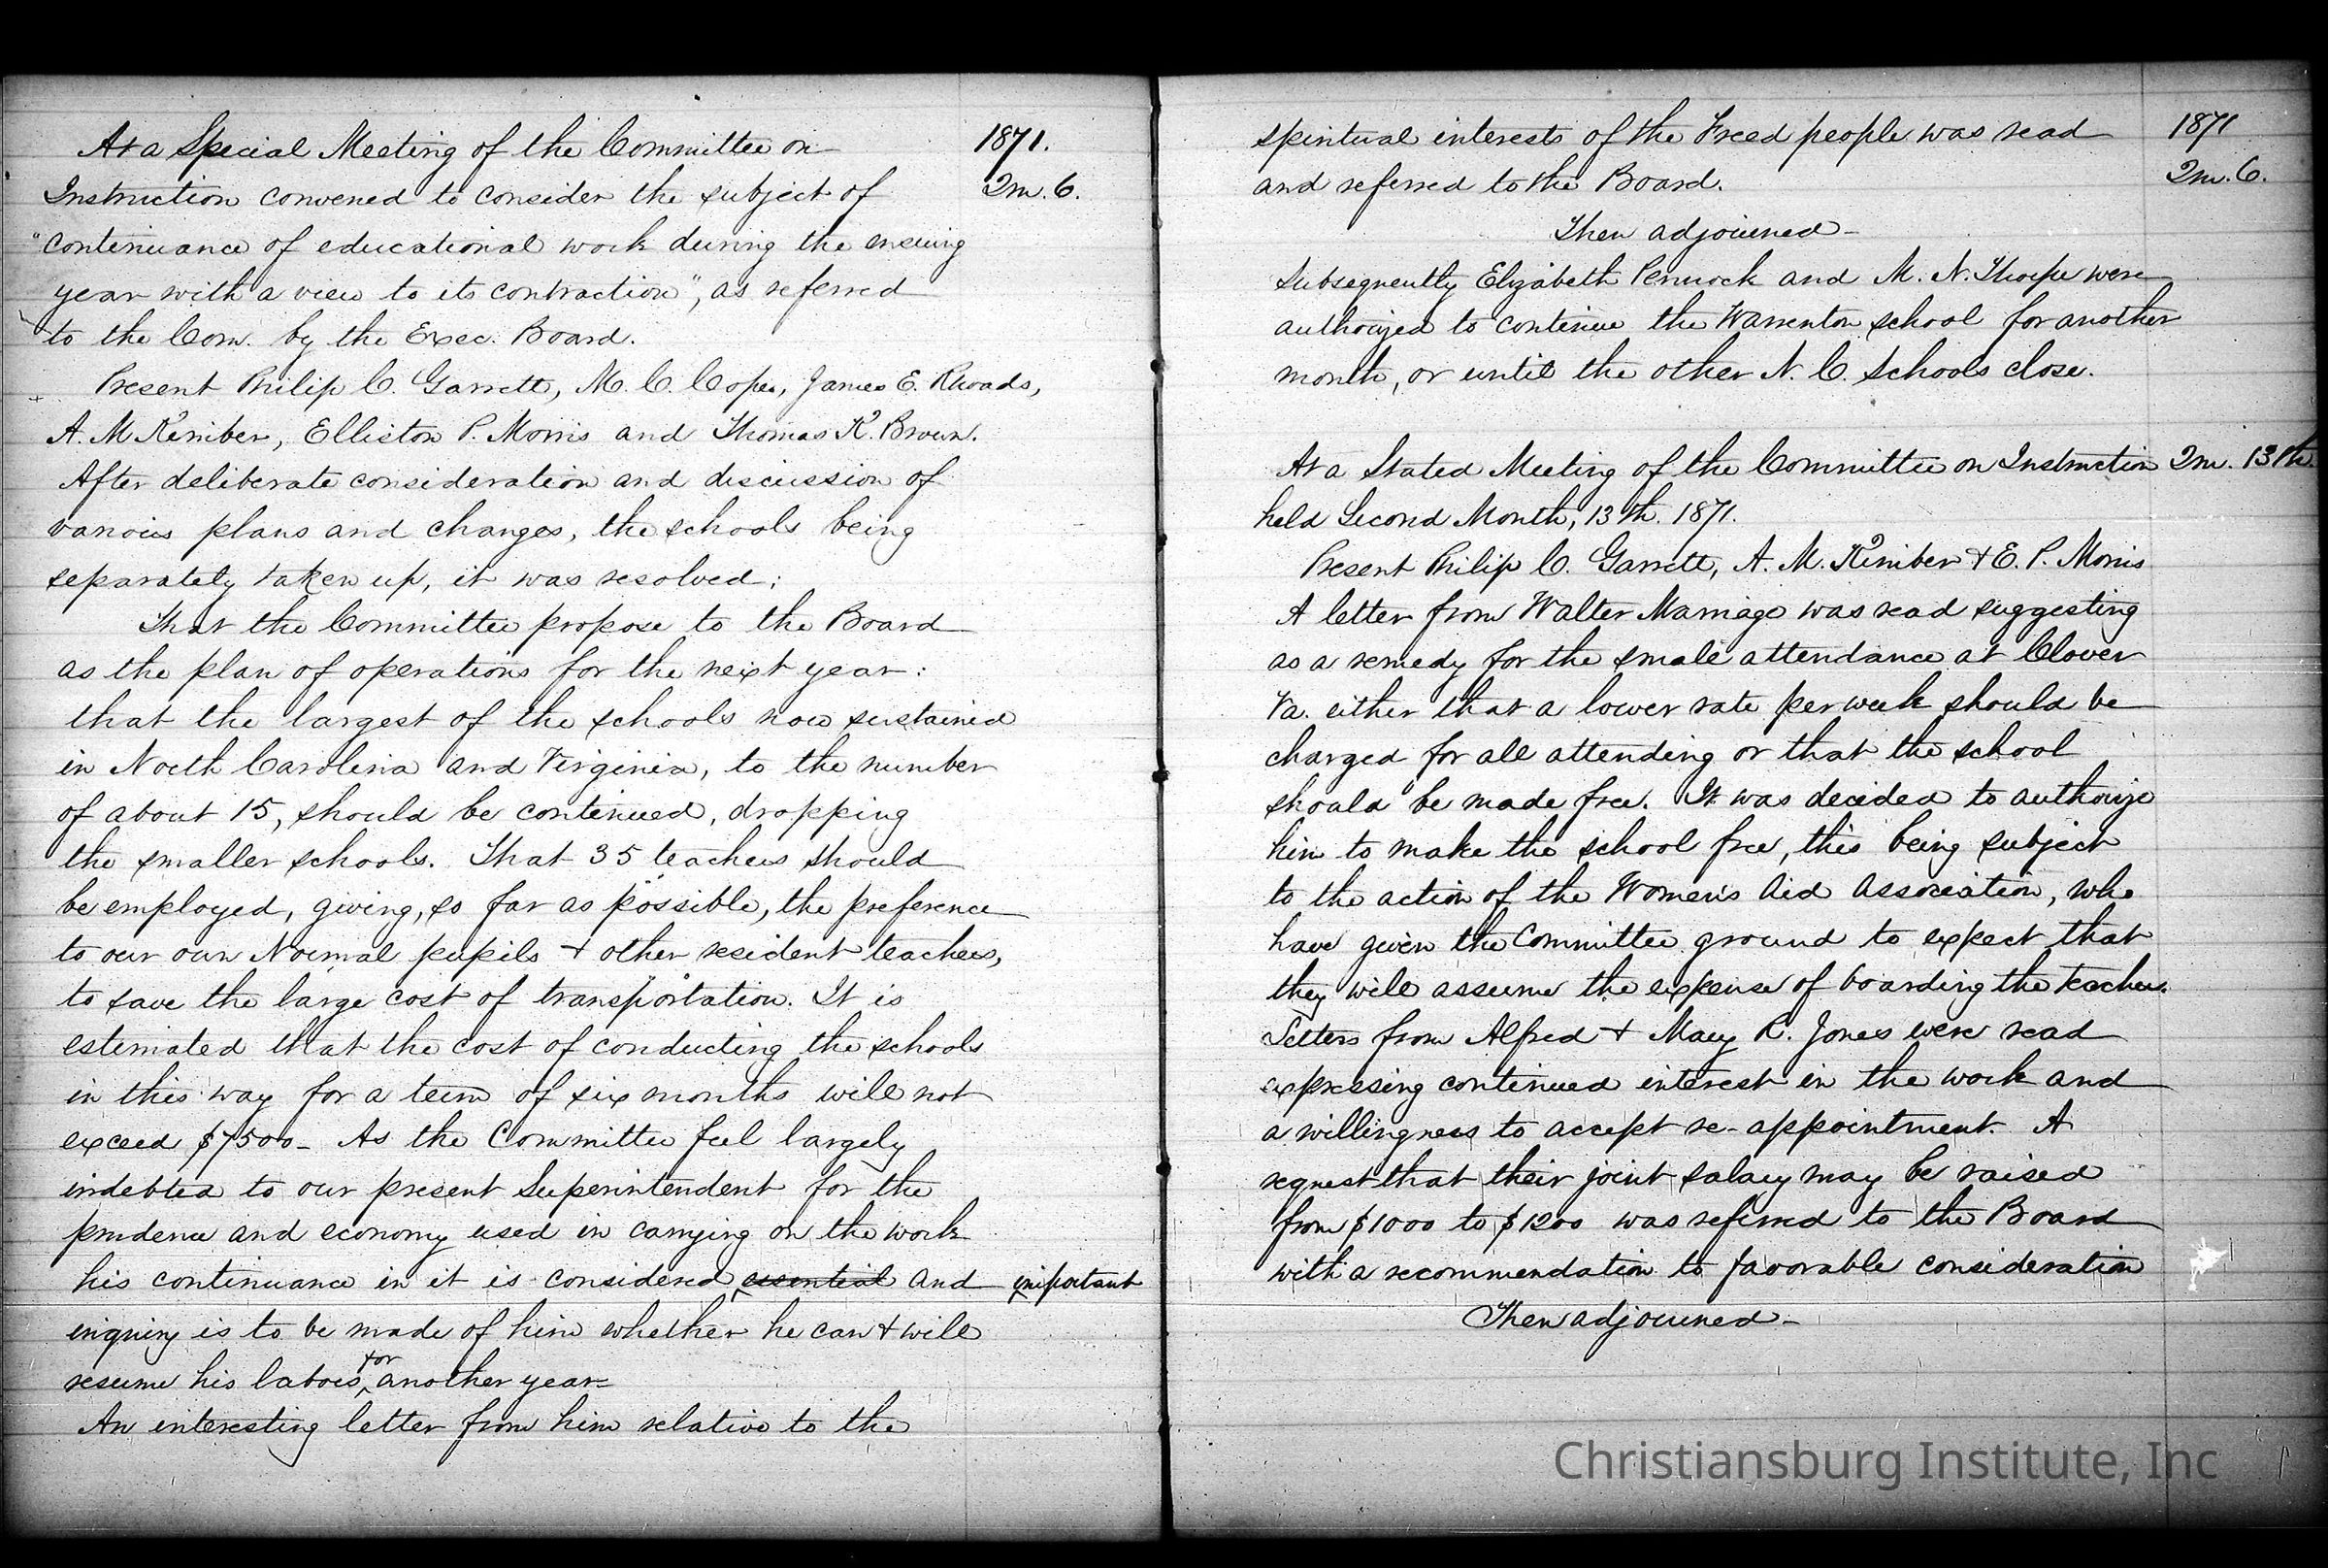 At a Special Meeting of the Committee on 1871.
Instruction convened to consider the subject of 2m. 6.
"continuance of educational work during the ensuing
year with a view to its contraction", as referred
to the Com. by the Exec. Board.
Present Philip C. Garrett, M. C. Cope, James E. Rhoads,
A. M. Kimber, Elliston P. Morris and Thomas K. Brown.
After deliberate consideration and discussion of
various plans and changes, the schools being
separately taken up, it was resolved;
That the Committee propose to the Board
as the plan of operations for the next year:
that the largest of the schools now sustained
in North Carolina and Virginia, to the number
of about 15, should be continued, dropping
the smaller schools. That 35 teachers should
be employed, giving, so far as possible, the preference
to our own Normal pupils & other resident teachers,
to save the large cost of transportation. It is
estimated that the cost of conducting the schools
in this way for a term of six months will not
exceed $7500- As the Committee feel largely
indebted to our present Superintendent for the
prudence and economy used in carrying on the work
his continuance in it is considered essential and important
enquiry is to be made of him whether he can & will
resume his labors for another year-
An interesting letter from him relative to the
spiritual interests of the Freed people was read 1871
and referred to the Board. 2m. 6.
Then adjourned-
Subsequently Elizabeth Pennock and M. N. Thorpe were
authorized to continue the Warrenton school for another
month, or until the other N. C. Schools close.
At a Stated Meeting of the Committee on Instruction 2m. 13th.
held Second Month, 13th. 1871.
Present Philip C. Garrett, A. M. Kimber & E. P. Morris
A letter from Walter Marriage was read suggesting
as a remedy for the small attendance at Clover
Va. either that a lower rate per week should be
charged for all attending or that the school
should be made free. It was decided to authorize
him to make the school free, this being subject
to the action of the Women's Aid Association, who
have given the Committee ground to expect that
they will assume the expense of boarding the teachers.
Letters from Alfred & Mary R. Jones were read
expressing continued interest in the work and
a willingness to accept re-appointment. A
request that their joint salary may be raised
from $1000 to $1200 was referred to the Board
with a recommendation to favorable consideration
Then adjourned-
Christiansburg Institute, Inc